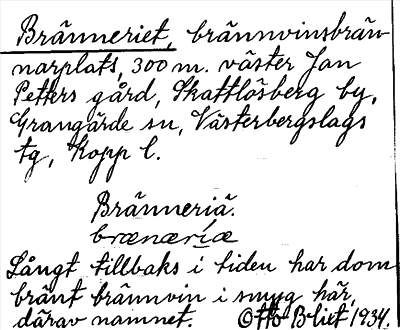 Bränneriet, brännvinsbrän-
narplats, 300 m. väster Jan
Petters gård, Skattlösberg by,
Grangärde sn, Västerbergslags
tg, Kopp l.
Bränneriä.
brænæríæ
Långt tillbaks i tiden har dom
bränt brännvin i smyg här,
därav namnet. Otto Blixt 1934.